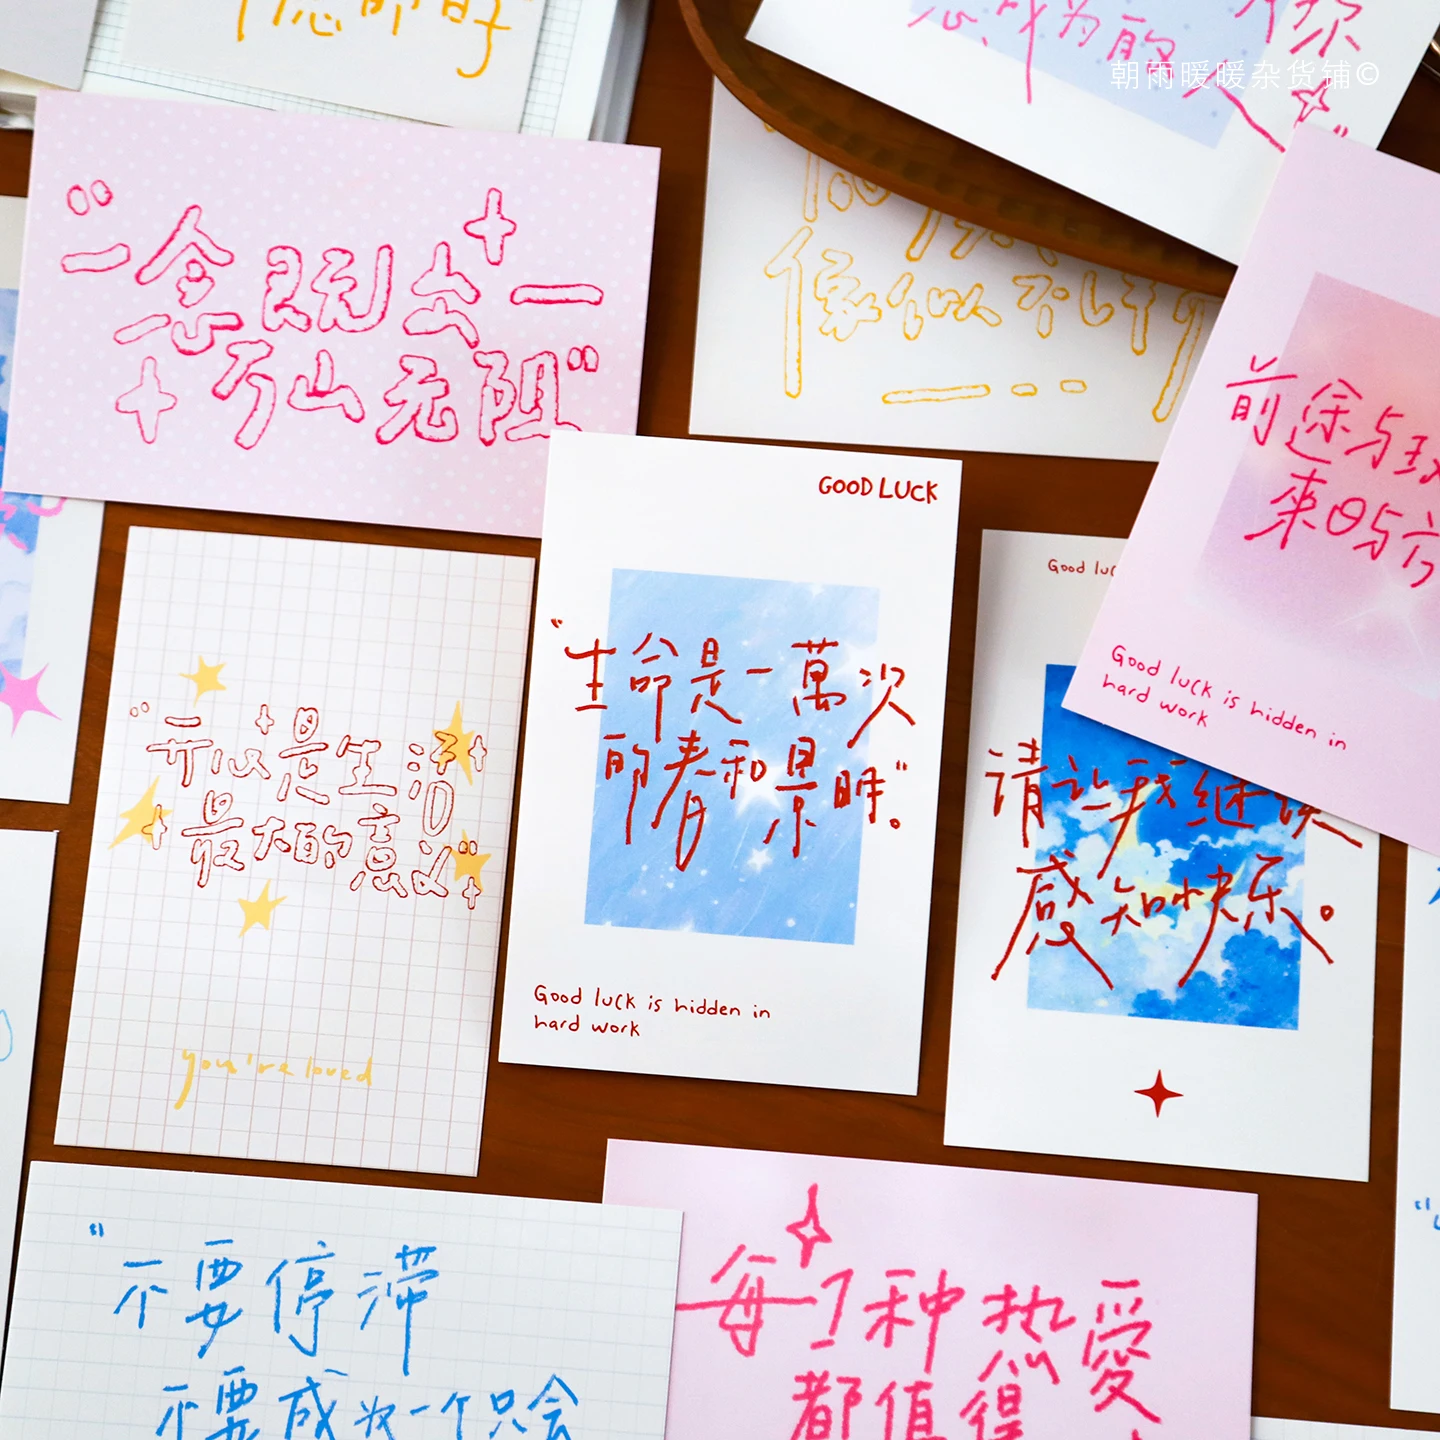 朝雨暖暖杂货铺©
成为的人
你
"一念既出
万山无阻"
像似不
前途与
来日与方
Good luck is hidden in
hard work
GOOD LUCK
"生命是一萬次
的春和景明"。
Good luck is hidden in
hard work
"开心是生活
最大的意义"
you're loved
Good luc
请让我继续
感知快乐。
"不要停滞
不要成为一个只会
每1种热愛
都值得